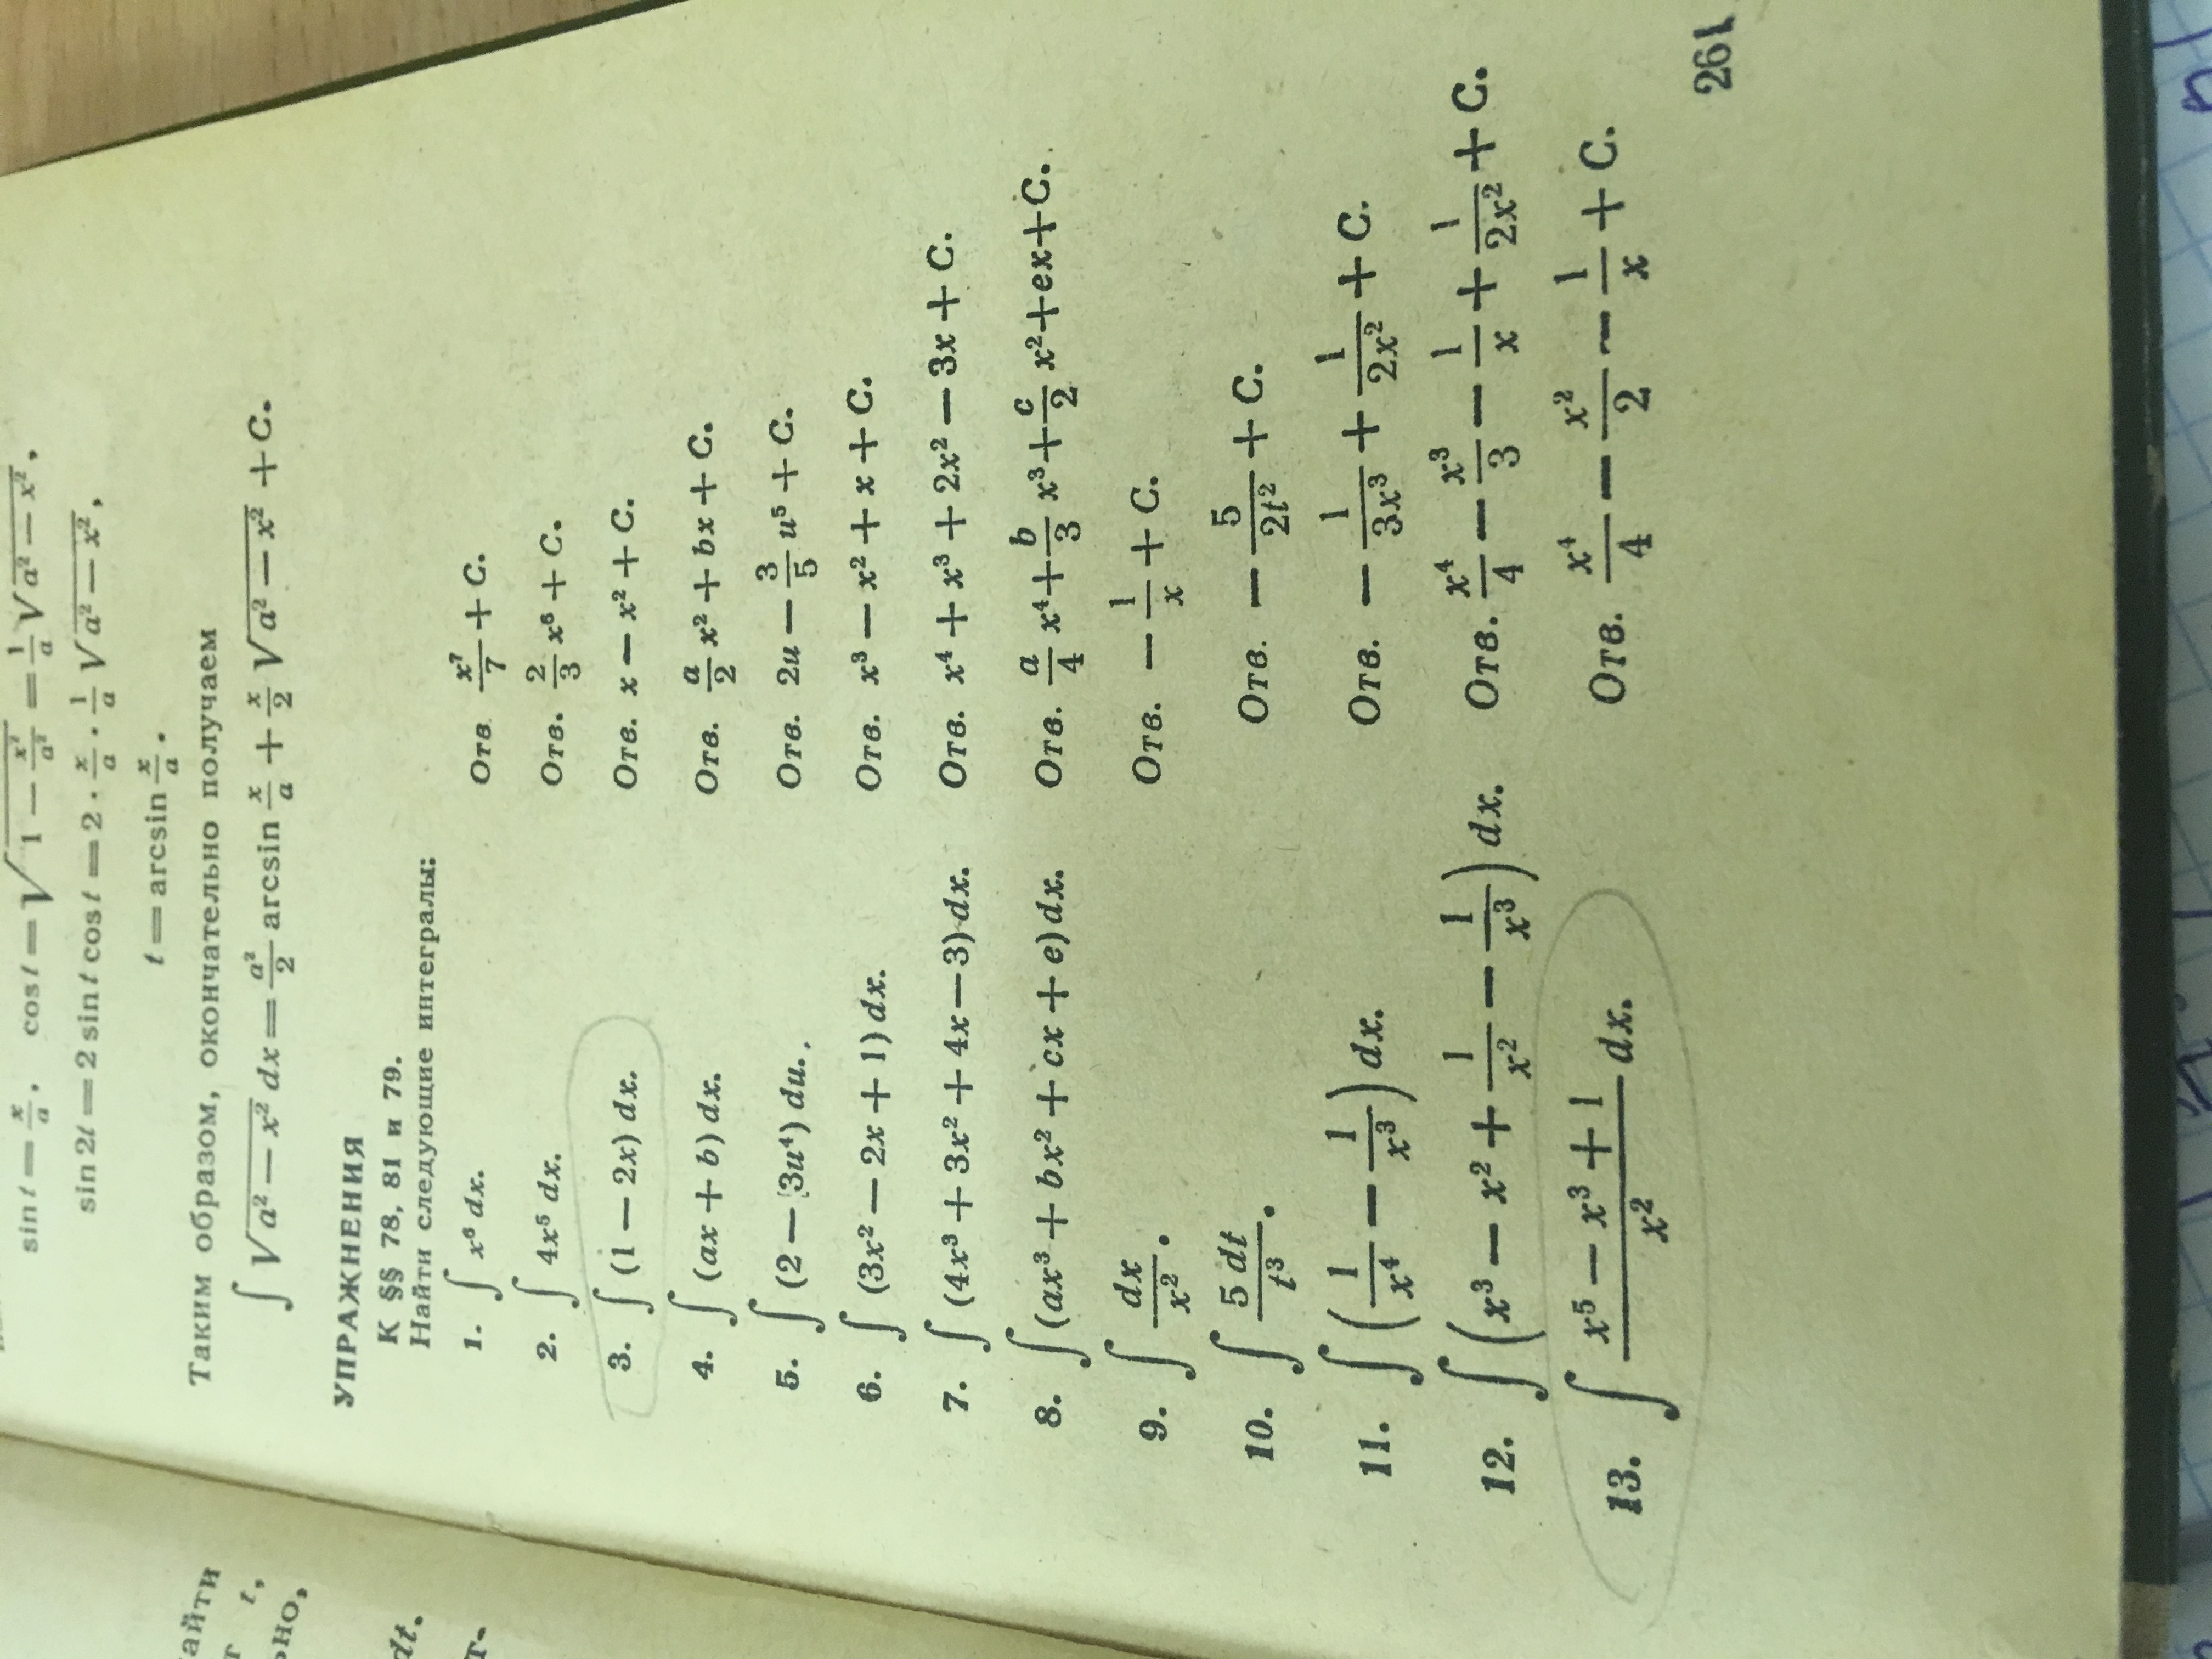 sin t = x/a, cos t = √(1 − x²/a²) = 1/a √(a² − x²),
sin 2t = 2 sin t cos t = 2 · x/a · 1/a √(a² − x²),
t = arcsin x/a.
Таким образом, окончательно получаем
∫ √(a² − x²) dx = a²/2 arcsin x/a + x/2 √(a² − x²) + C.
УПРАЖНЕНИЯ
К §§ 78, 81 и 79.
Найти следующие интегралы:
1. ∫ x⁶ dx. Отв. x⁷/7 + C.
2. ∫ 4x⁵ dx. Отв. 2/3 x⁶ + C.
3. ∫ (1 − 2x) dx. Отв. x − x² + C.
4. ∫ (ax + b) dx. Отв. a/2 x² + bx + C.
5. ∫ (2 − 3u⁴) du. Отв. 2u − 3/5 u⁵ + C.
6. ∫ (3x² − 2x + 1) dx. Отв. x³ − x² + x + C.
7. ∫ (4x³ + 3x² + 4x − 3) dx. Отв. x⁴ + x³ + 2x² − 3x + C.
8. ∫ (ax³ + bx² + cx + e) dx. Отв. a/4 x⁴ + b/3 x³ + c/2 x² + ex + C.
9. ∫ dx/x². Отв. − 1/x + C.
10. ∫ 5 dt/t³. Отв. − 5/2t² + C.
11. ∫ (1/x⁴ − 1/x³) dx. Отв. − 1/3x³ + 1/2x² + C.
12. ∫ (x³ − x² + 1/x² − 1/x³) dx. Отв. x⁴/4 − x³/3 − 1/x + 1/2x² + C.
13. ∫ (x⁵ − x³ + 1)/x² dx. Отв. x⁴/4 − x²/2 − 1/x + C.
261
айти
т t,
оно,
dt.
т-